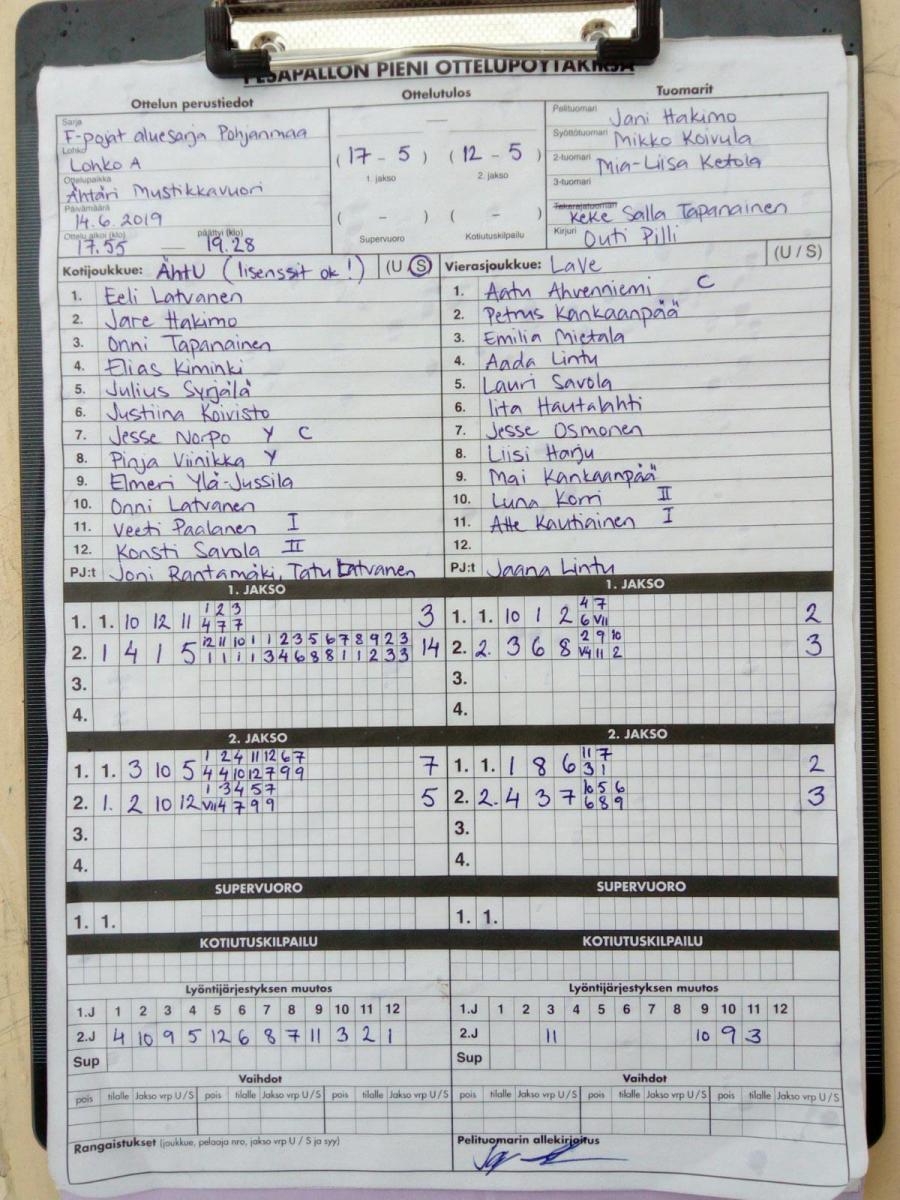 PESÄPALLON PIENI OTTELUPÖYTÄKIRJA
Ottelun perustiedot
Ottelutulos
Tuomarit
Sarja
F-pojat aluesarja Pohjanmaa
Lohko
Lohko A
Ottelupaikka
Ähtäri Mustikkavuori
Päivämäärä
14.6.2019
Ottelu alkoi (klo) päättyi (klo)
17.55 — 19.28
—
(17 - 5) (12 - 5)
1. jakso 2. jakso
( - ) ( - )
Supervuoro Kotiutuskilpailu
Pelituomari Jani Hakimo
Syöttötuomari Mikko Koivula
2-tuomari Mia-Liisa Ketola
3-tuomari
Takarajatuomari Keke Salla Tapanainen
Kirjuri Outi Pilli
Kotijoukkue: ÄhtU (lisenssit ok!) (U / S)
1. Eeli Latvanen
2. Jare Hakimo
3. Onni Tapanainen
4. Elias Kiminki
5. Julius Syrjälä
6. Justiina Koivisto
7. Jesse Norpo Y C
8. Pinja Viinikka Y
9. Elmeri Ylä-Jussila
10. Onni Latvanen
11. Veeti Paalanen I
12. Konsti Savola II
PJ:t Joni Rantamäki, Tatu Latvanen
Vierasjoukkue: LaVe (U / S)
1. Aatu Ahvenniemi C
2. Petrus Kankaanpää
3. Emilia Mietala
4. Aada Lintu
5. Lauri Savola
6. Iita Hautalahti
7. Jesse Osmonen
8. Liisi Harju
9. Mai Kankaanpää
10. Luna Korri II
11. Atte Kautiainen I
12.
PJ:t Jaana Lintu
1. JAKSO
1. 1. 10 12 11 1 2 3 3
4 7 7
2. 1 4 1 5 12 11 10 1 1 2 3 5 6 7 8 9 2 3 14
1 1 1 1 3 4 6 8 8 1 1 2 3 3
3.
4.
1. JAKSO
1. 1. 10 1 2 4 7 2
6 VII
2. 2. 3 6 8 2 9 10 3
V4 11 2
3.
4.
2. JAKSO
1. 1. 3 10 5 1 2 4 11 12 6 7 7
4 4 10 12 7 9 9
2. 1. 2 10 12 1 3 4 5 7 5
VII 4 7 9 9
3.
4.
2. JAKSO
1. 1. 1 8 6 11 7 2
3 1
2. 2. 4 3 7 10 5 6 3
6 8 9
3.
4.
SUPERVUORO
1. 1.
SUPERVUORO
1. 1.
KOTIUTUSKILPAILU
KOTIUTUSKILPAILU
Lyöntijärjestyksen muutos
1.J 1 2 3 4 5 6 7 8 9 10 11 12
2.J 4 10 9 5 12 6 8 7 11 3 2 1
Sup
Lyöntijärjestyksen muutos
1.J 1 2 3 4 5 6 7 8 9 10 11 12
2.J 11 10 9 3
Sup
Vaihdot
pois tilalle Jakso vrp U / S pois tilalle Jakso vrp U / S pois tilalle Jakso vrp U / S
Vaihdot
pois tilalle Jakso vrp U / S pois tilalle Jakso vrp U / S pois tilalle Jakso vrp U / S
Rangaistukset (joukkue, pelaaja nro, jakso vrp U / S ja syy)
Pelituomarin allekirjoitus